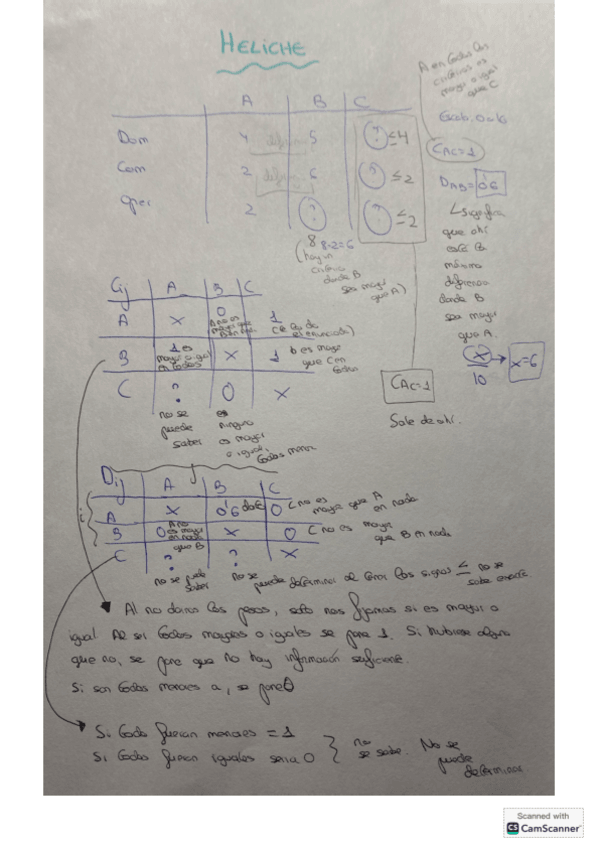 HELICHE
A en todos los
criterios es
mayor o igual
que C
A B C
Dom 4 5 ? ≤4
Com 2 6 ? ≤2
Oper 2 ? ? ≤2
CAC=1
DAB=0'6
↳ significa
que ahí
está la
máxima
diferencia
donde B
sea mayor
que A.
x/10 → x=6
8 8-2=6
(hay un
criterio
donde B
sea mayor
que A)
Cij A B C
A x 0 1
(lo da
el enunciado)
B 1 es
mayor o igual
en todos x 1 b es mayor
que C en
todos
C ? 0 x
no se
puede
saber
ninguno
es mayor
o igual,
todos menor
CAC=1
Sale de ahí.
Dij A B C
i
A x 0'6 dato 0 C no es
mayor que A
en nada
B 0 A no
es mayor
en nada
que B x 0 C no es mayor
que B en nada
C ? ? x
no se puede
saber
no se puede determinar al tener los signos ≤ no se
sabe
Al no darnos los pesos, solo nos fijamos si es mayor o
igual. Al ser todos mayores o iguales se pone 1. Si hubiese alguno
que no, se pone que no hay información suficiente.
Si son todos menores a, se pone 0
Si todo fueran menores = 1
Si todos fueran iguales sería 0 } no se sabe. No se
puede
determinar
Scanned with
CS CamScanner